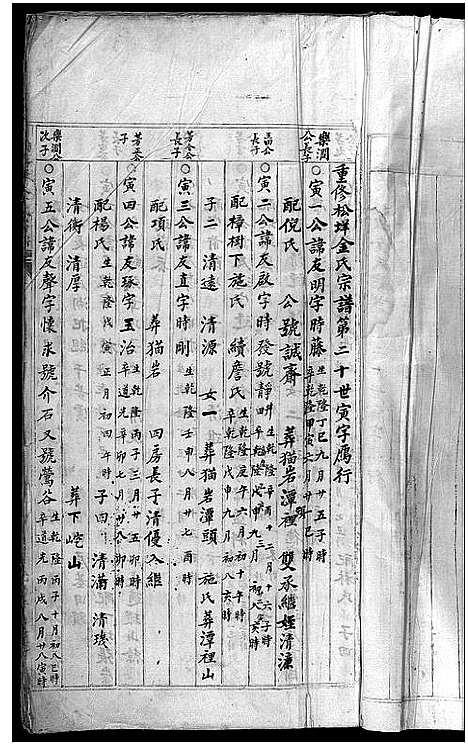 重修松垟金氏宗譜第二十世寅字鴈行
樂潤公長子
○寅一公諱友明字時藤 生乾隆丁巳九月廿五子時 卒乾隆甲寅六月初 巳時
配倪氏 公號誠齋 葬猫岩潭裡 雙承繼姪清濂
公長子
○寅二公諱友啟字時發號靜井 生乾隆辛 十二月十六子時 卒乾隆戊申九月初八亥時
配樟樹下施氏 續詹氏 生乾隆庚午六月初十午時 卒乾隆戊申九月初八亥時
子二 清遠 清源 女一 葬猫岩潭頭 施氏葬潭裡山
公長子
○寅三公諱友直字時剛 生乾隆壬申八月廿七酉時
配項氏 葬猫岩 四房長子清優入繼
子
○寅四公諱友琢字玉治 生乾隆丙子三月廿五卯時 卒道光辛卯七月廿八卯時
配楊氏 生乾隆戊寅正月初四午時 子四 清滿 清琰
清衡 清厚 葬下屹山
樂潤公次子
○寅五公諱友聲字懷求號介石又號鶯谷 生乾隆丙子十月初八巳時 卒道光丙戌八月廿八寅時